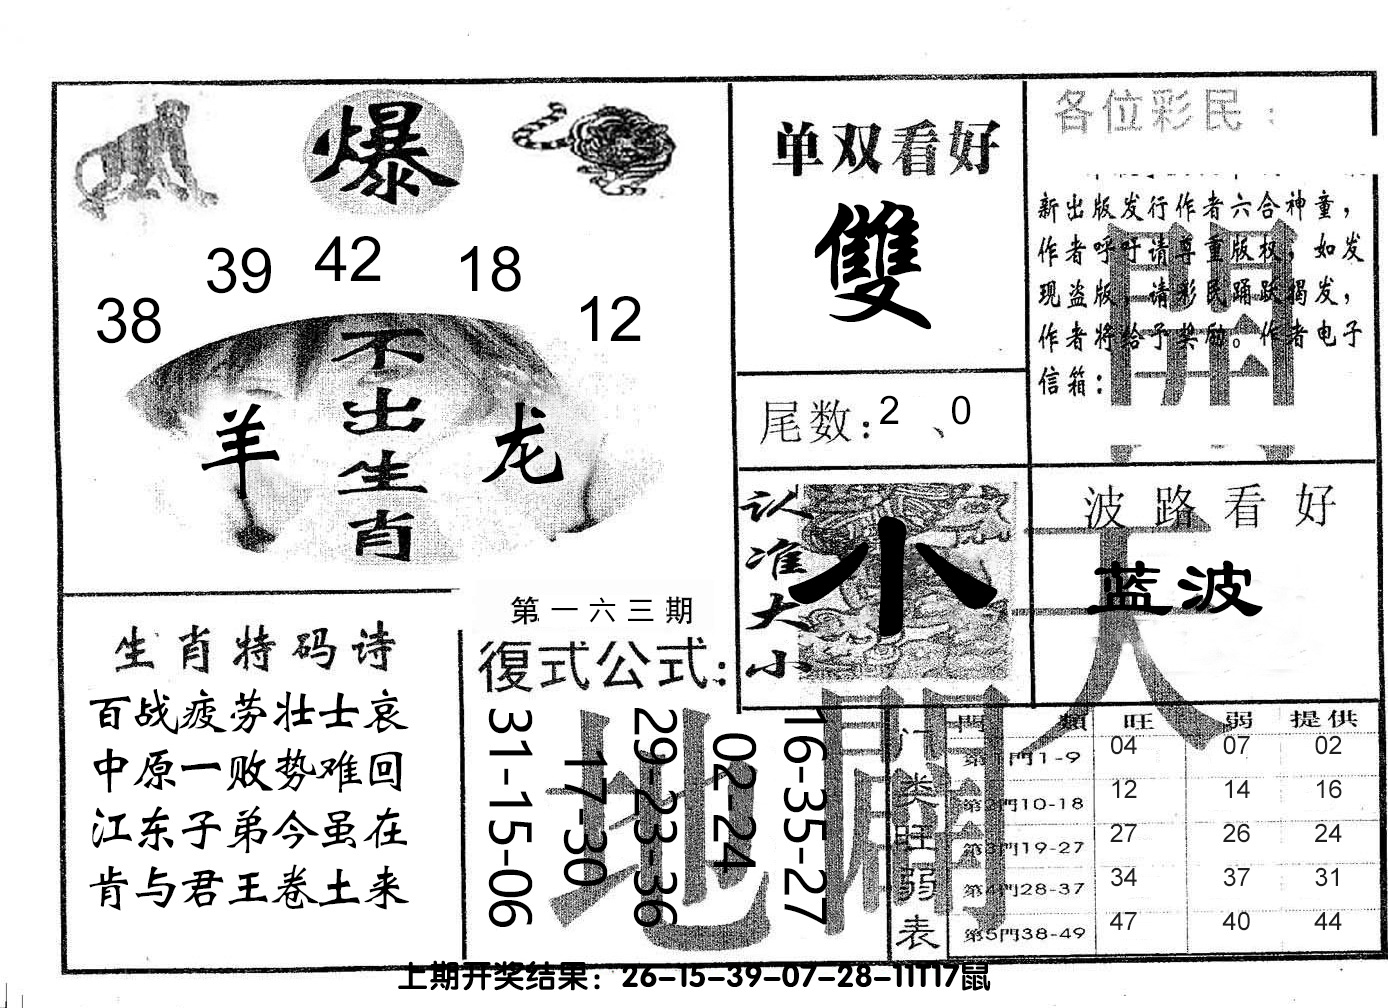 爆
39 42 18
38 12
不出生肖
羊 龙
单双看好
雙
尾数：2、0
各位彩民：
新出版发行作者六合神童，
作者呼吁请尊重版权，如发
现盗版，请彩民踊跃揭发，
作者将给予奖励。作者电子
信箱：
認准大小
小
波路看好
蓝波
天地
生肖特码诗
百战疲劳壮士哀
中原一败势难回
江东子弟今虽在
肯与君王卷土来
第一六三期
復式公式：
31-15-06
17-30
29-23-36
02-24
16-35-27
门类旺弱表
門類 旺 弱 提供
第1門1-9 04 07 02
第2門10-18 12 14 16
第3門19-27 27 26 24
第4門28-37 34 37 31
第5門38-49 47 40 44
上期开奖结果：26-15-39-07-28-11T17鼠